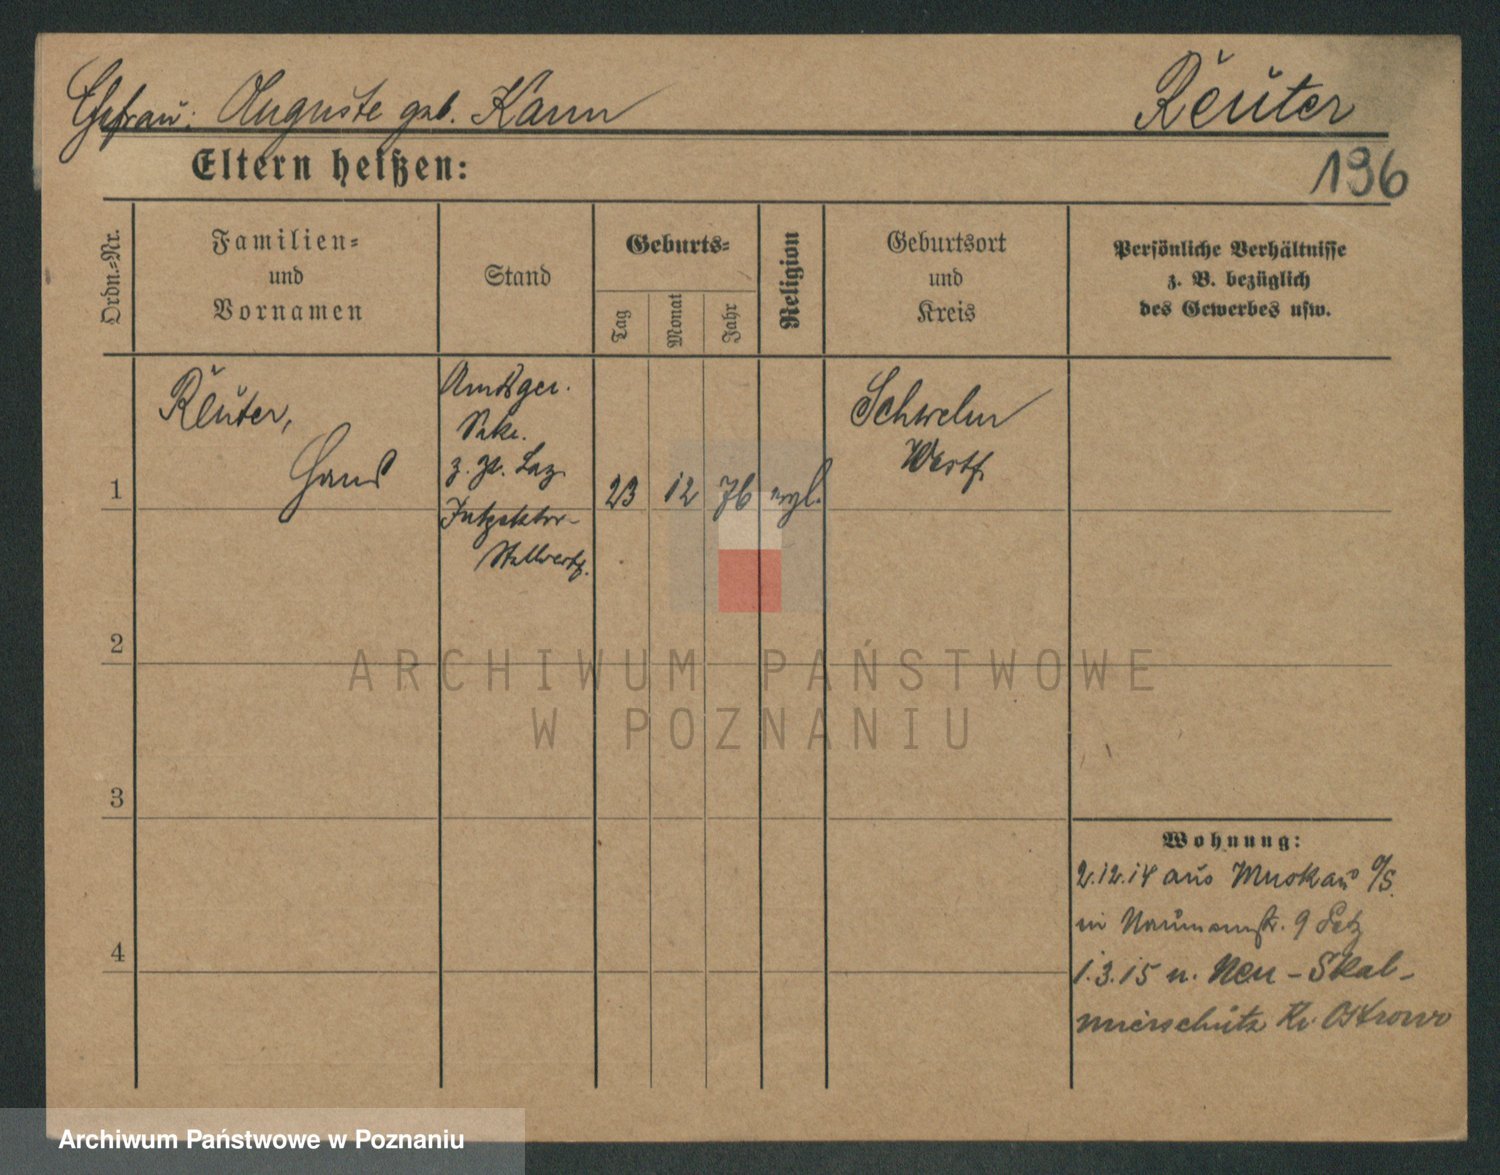 Ehefrau: Auguste geb. Kann
Reuter
Eltern heißen:
196
Ordn.=Nr.
Familien=
und
Vornamen
Stand
Geburts=
Tag
Monat
Jahr
Religion
Geburtsort
und
Kreis
Persönliche Verhältnisse
z. B. bezüglich
des Gewerbes usw.
1
Reuter,
Hans
Amtsger.
Sekr.
z. Zt. Laz.
Inspektor-
Stellvertr.
23
12
76
evgl.
Schwelm
Westf.
2
3
4
Wohnung:
2.12.14 aus Muskau O/S.
in Naumannstr. 9
1.3.15 n. Neu-Skal-
mierschütz Kr. Ostrowo
ARCHIWUM PAŃSTWOWE
W POZNANIU
Archiwum Państwowe w Poznaniu